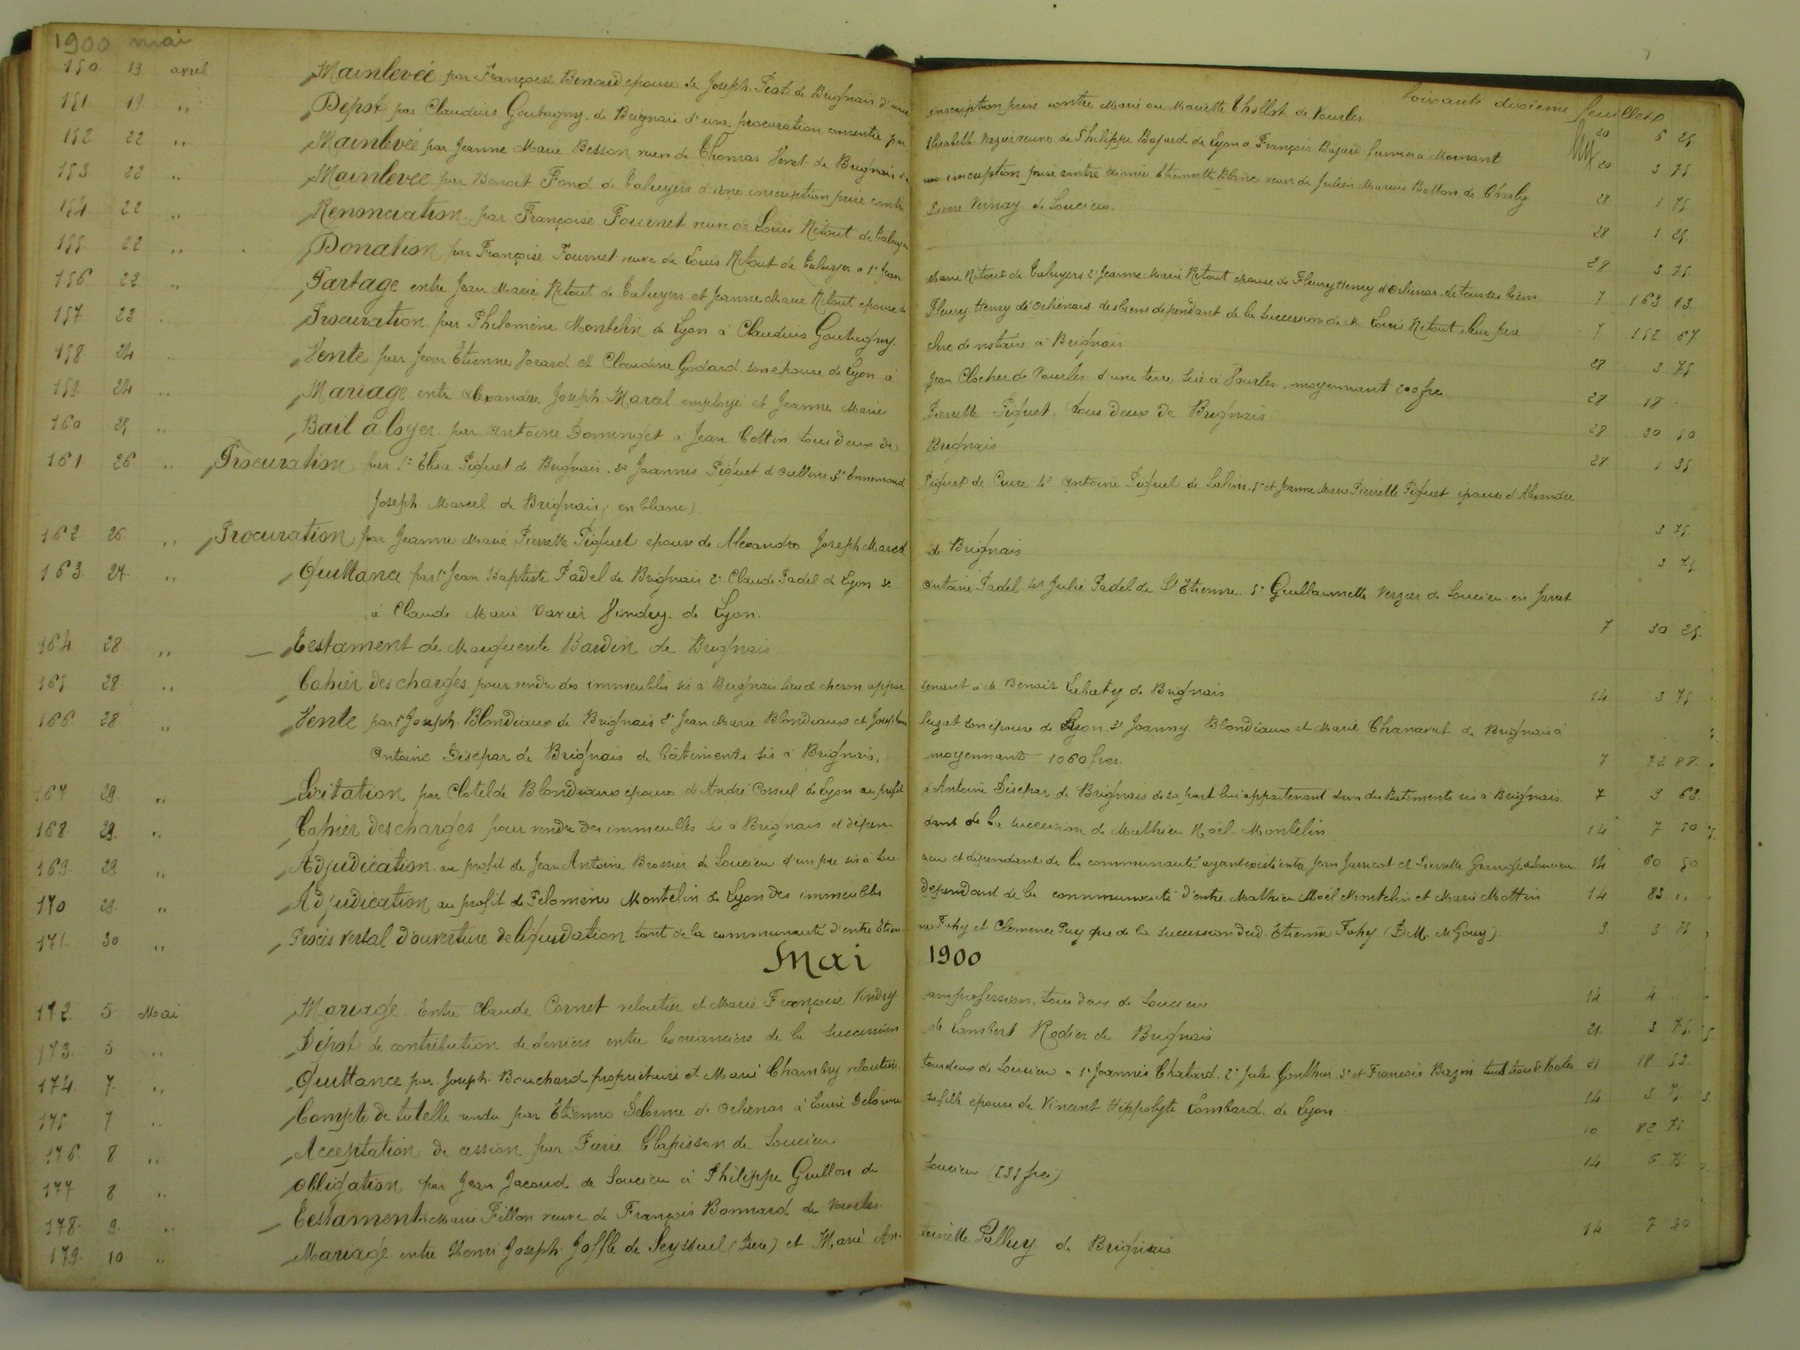 1900 mai
Soixante deuxième feuillet
150 19 avril Mainlevée par Françoise Benaud epouse de Joseph Piot de Brignais d'une inscription prise contre Marie ou Mariette Chollet de Vourles 20 6 25
151 19 " Dépôt par Claudius Goutagny de Brignais d'une procuration consentie par Elisabeth veuve de Philippe Bajard de Lyon à François Bajard à Mornant 20 3 75
152 22 " Mainlevée par Jeanne Marie Besson veuve de Thomas de Brignais inscription prise contre Etiennette Blanc veuve de Julien Marius Botton de Charly 28 1 75
153 22 " Mainlevée par Benoit Fond de Taluyers d'une inscription prise contre Pierre Vernay de Soucieu. 28 1 25
154 22 " Renonciation par Françoise Fournet veuve de Louis Ritout de Taluyers 28 3 75
155 22 " Donation par Françoise Fournet veuve de Louis Ritout de Taluyers à 1° Jean Marie Ritout de Taluyers 2° Jeanne Marie Ritout épouse de Fleury Henry d'Orliénas de tous ses biens 7 163 13
156 22 " Partage entre Jean Marie Ritout de Taluyers et Jeanne Marie Ritout epouse de Fleury Henry d'Orliénas des biens dépendant de la succession de M. Louis Ritout leur père 7 152 67
157 23 " Procuration par Philomène Montelin de Lyon à Claudius Goutagny clerc de notaire à Brignais 28 3 75
158 24 " Vente par Jean Etienne et Claudine Godard son epouse de Lyon à Jean Clocher de Vourles d'une terre sise à Vourles, moyennant 200 frs 28 18
159 24 " Mariage entre Alexandre Joseph Marcel employé et Jeanne Marie Pierrette Piguet tous deux de Brignais 28 30 50
160 25 " Bail à loyer par Antoine Dominget à Jean Cottin tous deux de Brignais 28 1 35
161 26 " Procuration par 1° Elisa Piguet de Brignais 2° Joannes Piguet d'Oullins 3° Ennemond Piguet de 4° Antoine Piguet de Salins, 5° et Jeanne Marie Pierrette Piguet épouse d'Alexandre
Joseph Marcel de Brignais, (en blanc) 3 75
162 26 " Procuration par Jeanne Marie Pierrette Piguet epouse de Alexandre Joseph Marcel de Brignais 3 75
163 27 " Quittance par 1° Jean Baptiste Padel de Brignais 2° Claude Padel de Lyon 3° Antoine Padel 4° Julie Padel de St Etienne 5° Guillaumette Verzier de Soucieu en Jarret
à Claude Marie Xavier Vindry de Lyon. 7 30 25
164 28 " Testament de Marguerite Bardin de Brignais
165 28 " Cahier des charges pour vendre des immeubles sis à Brignais lieu de cheron appartenant à de Benoit de Brignais 14 3 75
166 28 " Vente par 1° Joseph Blondiaux de Brignais 2° Jean Marie Blondiaux et Joséphine son épouse de Lyon 3° Joanny Blondiaux et Marie Chanavat de Brignais à
Antoine Disepar de Brignais de bâtiments sis à Brignais, moyennant 1060 frs. 7 72 88
167 29 " Licitation par Clotilde Blondiaux epouse d'André Conseil de Lyon au profit d'Antoine Disepar de Brignais de sa part lui appartenant dans des Batiments sis à Brignais 7 3 63
168 29 " Cahier des charges pour vendre des immeubles sis à Brignais et dépendant de la succession de Mathieu Noël Montelin 14 7 50
169 29 " Adjudication au profit de Jean Antoine Brossier de Soucieu d'un pré sis à Soucieu et dépendant de la communauté ayant existé entre Jean et Pierrette Grange de Soucieu 14 60 50
170 29 " Adjudication au profit de Pelomène Montelin de Lyon des immeubles dépendant de la communauté d'entre Mathieu Noël Montelin et Marie Mottin 14 83 "
171 30 " Procès verbal d'ouverture de liquidation tant de la communauté d'entre Etienne Fahy et Clemence Puy que de la succession dud. Etienne Fahy (D.M. Me Gouy) 3 3 75
Mai 1900
172 5 Mai Mariage Entre Claude Cornet veloutier et Marie Françoise Vindry sans profession, tous deux de Soucieu 14 4
173 5 " Dépôt de contribution de deniers entre les créanciers de la succession de Lambert Rodier de Brignais 21 3 75
174 7 " Quittance par Joseph Bouchard propriétaire et Marie Chambry veloutière tous deux de Soucieu à 1° Joannès Chatard 2° Jules Gonthier 3° et François Bazin tous trois de Vourles 21 18 53
175 7 " Compte de tutelle rendu par Etienne Delorme de Orliénas à Louise Delorme sa fille épouse de Vincent Hippolyte Lombard de Lyon 14 3 75
176 8 " Acceptation de cession par Pierre Clapisson de Soucieu 10 82 75
177 8 " Obligation par Jean Jacoud de Soucieu à Philippe Guillon de Soucieu (535 frcs) 14 6 75
178 9 " Testament Marie Fillon veuve de François Bonnard de Vourles
179 10 " Mariage entre Henri Joseph Joffle de Seyssuel (Isère) et Marie Antoinette Palluy de Brignais 14 7 20